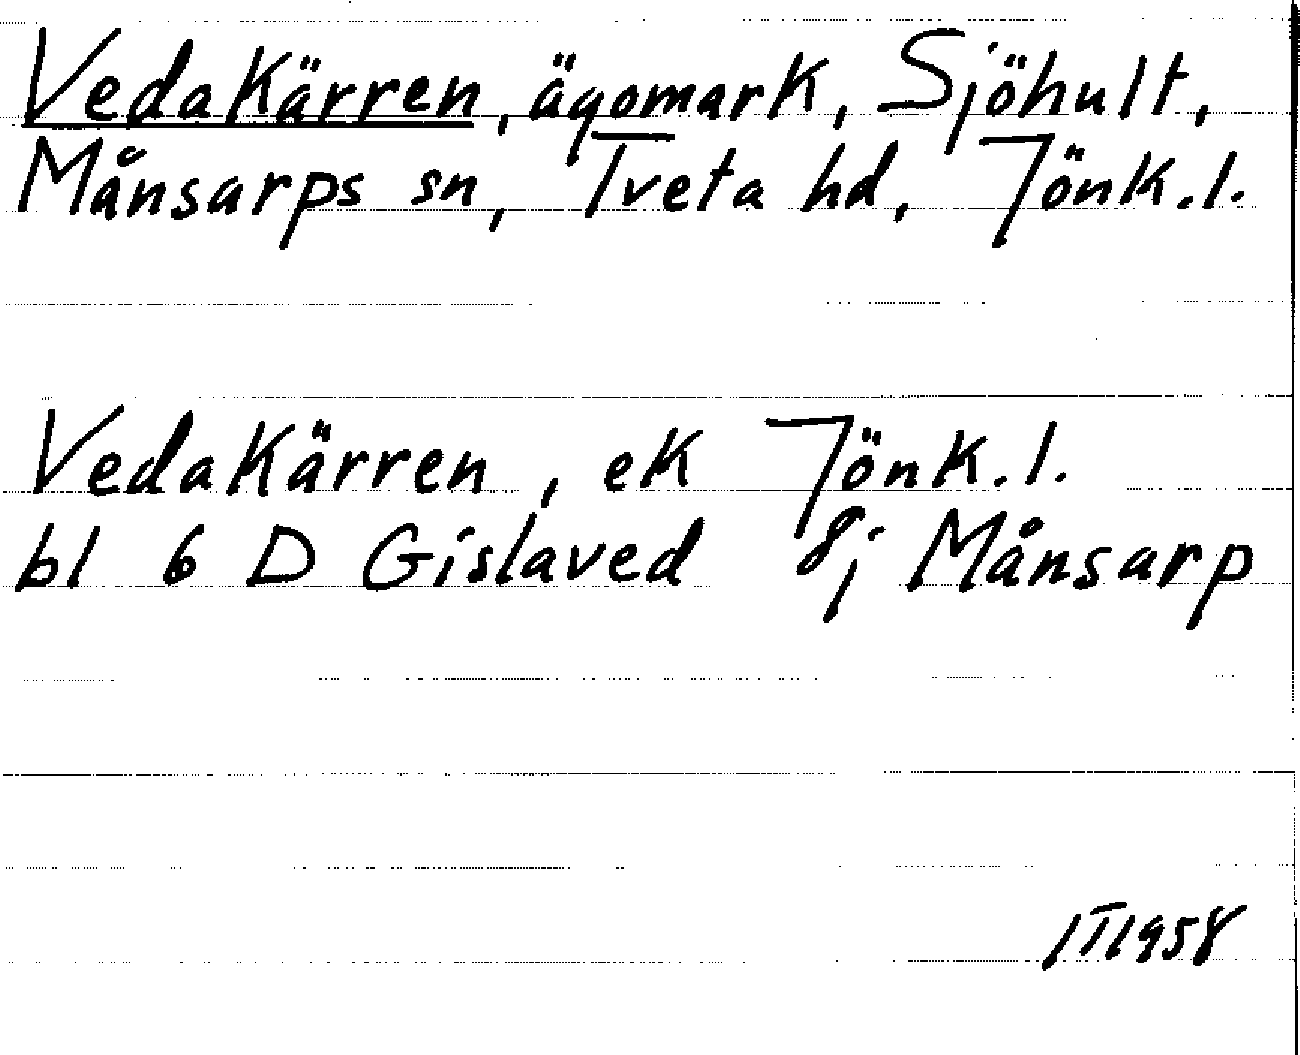 Vedakärren, ägomark, Sjöhult,
Månsarps sn, Tveta hd, Jönk.l.
Vedakärren, ek Jönk.l.
bl 6 D Gislaved 8j Månsarp